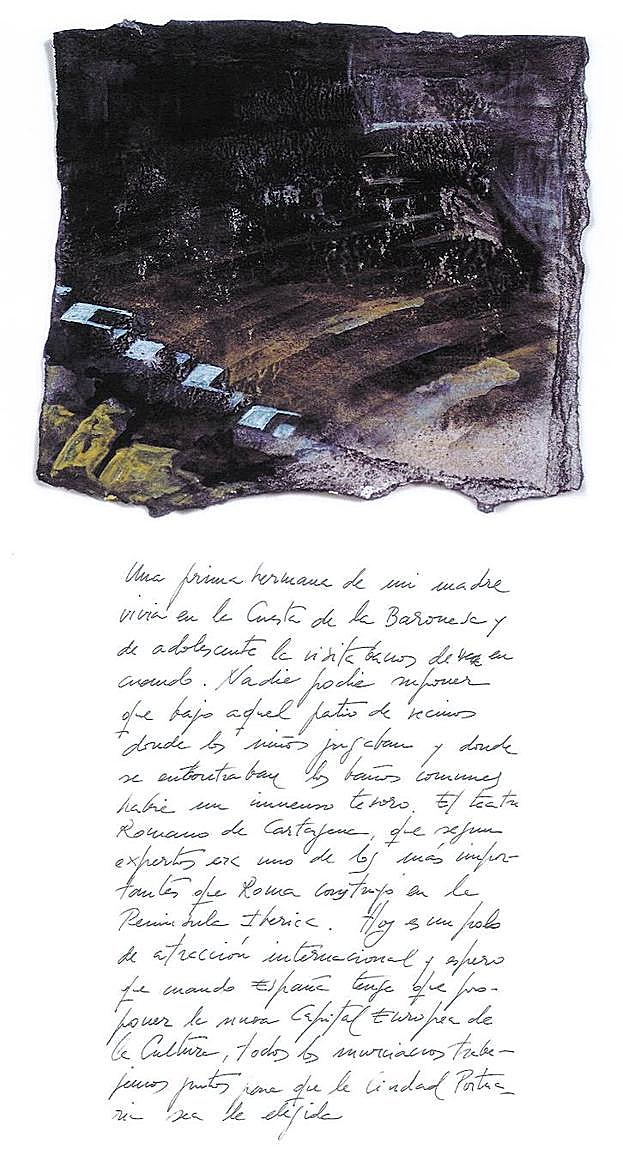 Una prima hermana de mi madre
vivia en la Cuesta de la Baronesa y
de adolescente la visitabamos de vez en
cuando. Nadie podia suponer
que bajo aquel patio de vecinos
donde los niños jugaban y donde
se entontraban los baños comunes
habia un inmenso tesoro. El teatro
Romano de Cartagena, que segun
expertos era uno de los más impor-
tantes que Roma construyó en la
Peninsula Iberica. Hoy es un polo
de atracción internacional y espero
que cuando España tenga que pro-
poner la nueva Capital Europea de
la Cultura, todos los murcianos traba-
jemos juntos para que la Ciudad Portua-
ria sea la elegida